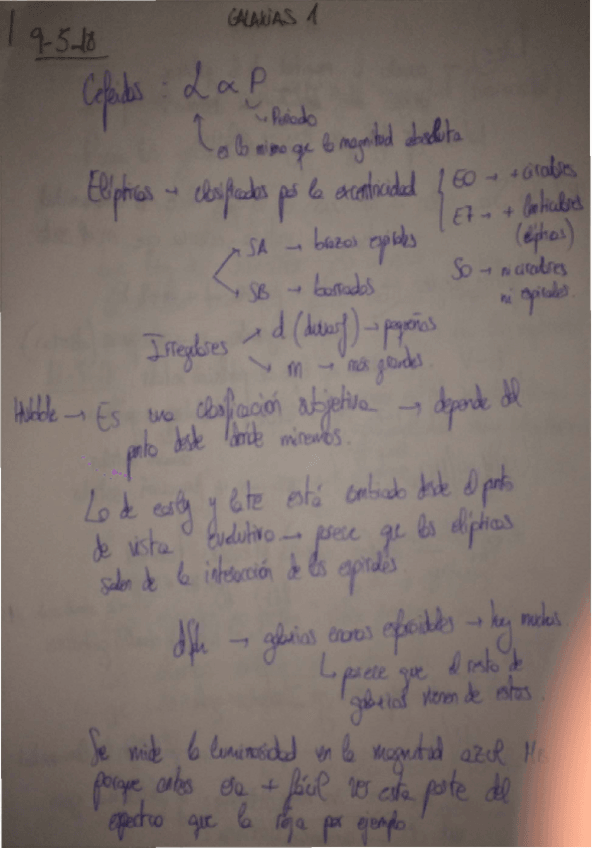 GALAXIAS 1
9-5-18
Cefeidas : L ∝ P
Periodo
es lo mismo que la magnitud absoluta
Elípticas → clasificadas por la excentricidad
E0 → + circulares
E7 → + lenticulares
(elípticas)
S0 → ni circulares
ni espirales.
SA → brazos espirales
SB → barradas
Irregulares
d (dwarf) → pequeñas
m → más grandes
Hubble → Es una clasificación subjetiva → depende del
punto desde donde miremos.
Lo de early y late está cambiado desde el punto
de vista evolutivo → parece que las elípticas
salen de la interacción de las espirales
dSph → galaxias enanas esferoidales → hay muchas.
parece que el resto de
galaxias vienen de estas.
Se mide la luminosidad en la magnitud azul
porque antes era + fácil ver esta parte del
espectro que la roja por ejemplo